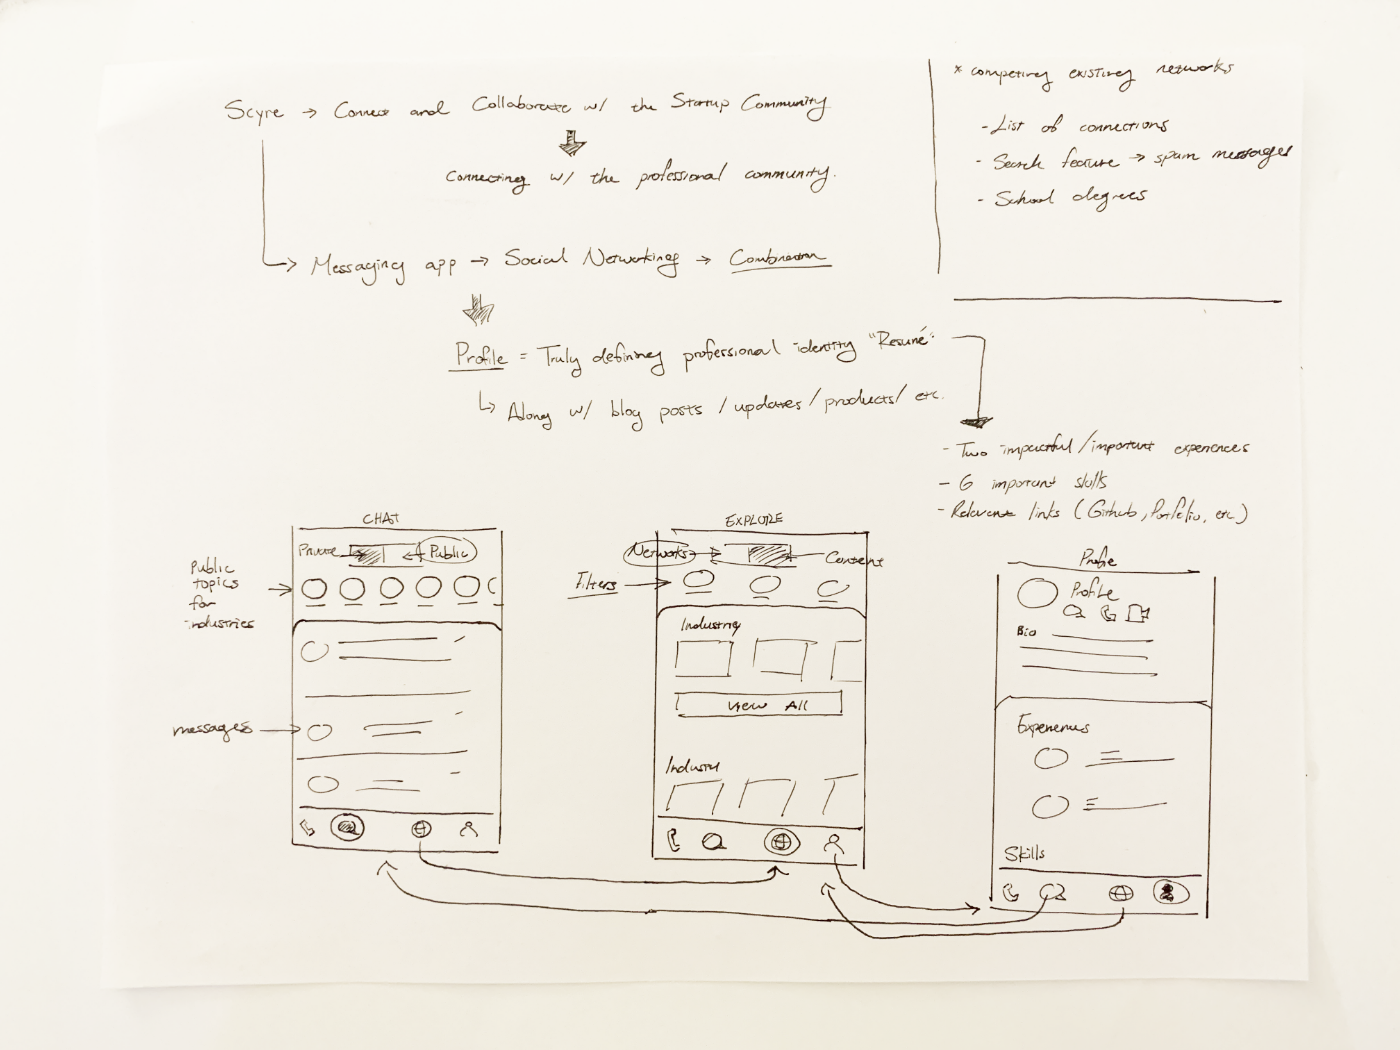 Scyre → Connect and Collaborate w/ the Startup Community
Connecting w/ the professional community.
→ Messaging app → Social Networking → Combination
Profile = Truly defining professional identity "Resumé"
↳ Along w/ blog posts / updates / products / etc.
* competing existing networks
- List of connections
- Search feature → spam messages
- School degrees
- Two impactful / important experiences
- 6 important skills
- Relevant links (Github, Portfolio, etc)
CHAT
Private
Public
Public
topics
for
industries
messages
EXPLORE
Networks
Content
Filters
Industry
View All
Industry
Profile
Profile
Bio
Experiences
Skills